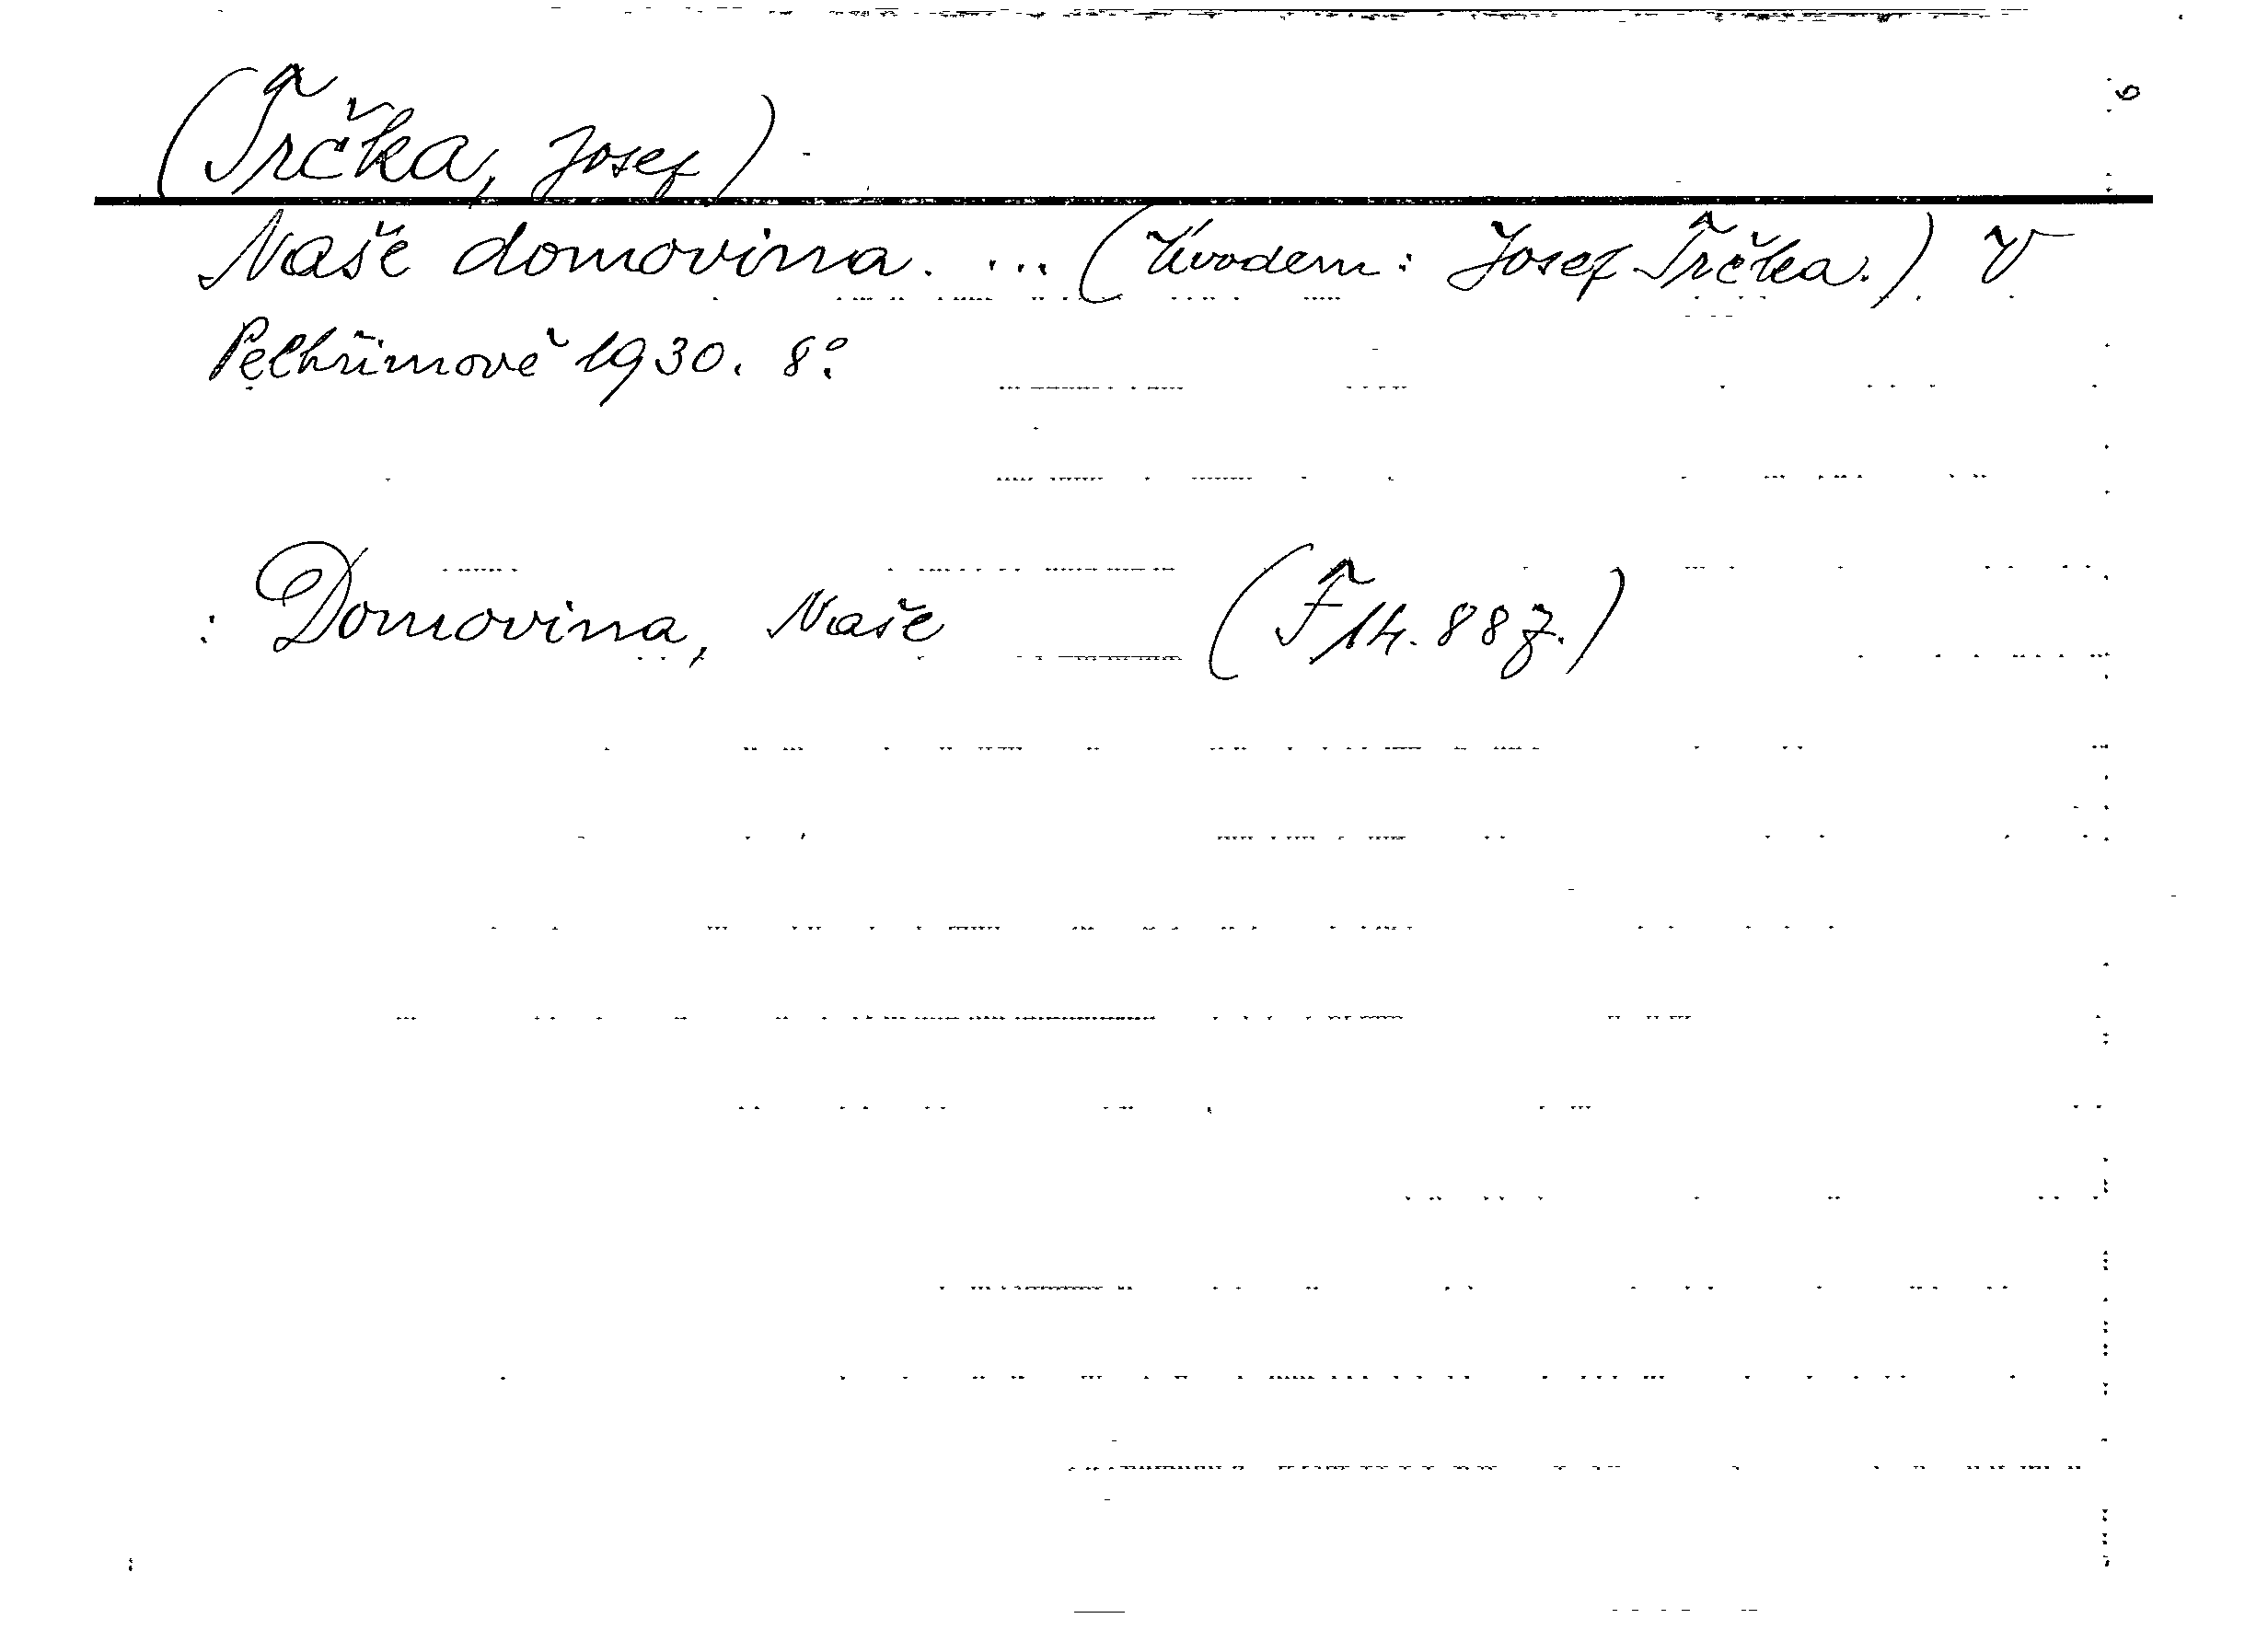 6
(Trčka, Josef)
Naše domovina. ... (Úvodem: Josef Trčka.) V
Pelhřimově 1930. 8°.
: Domovina, Naše (F 14. 887.)